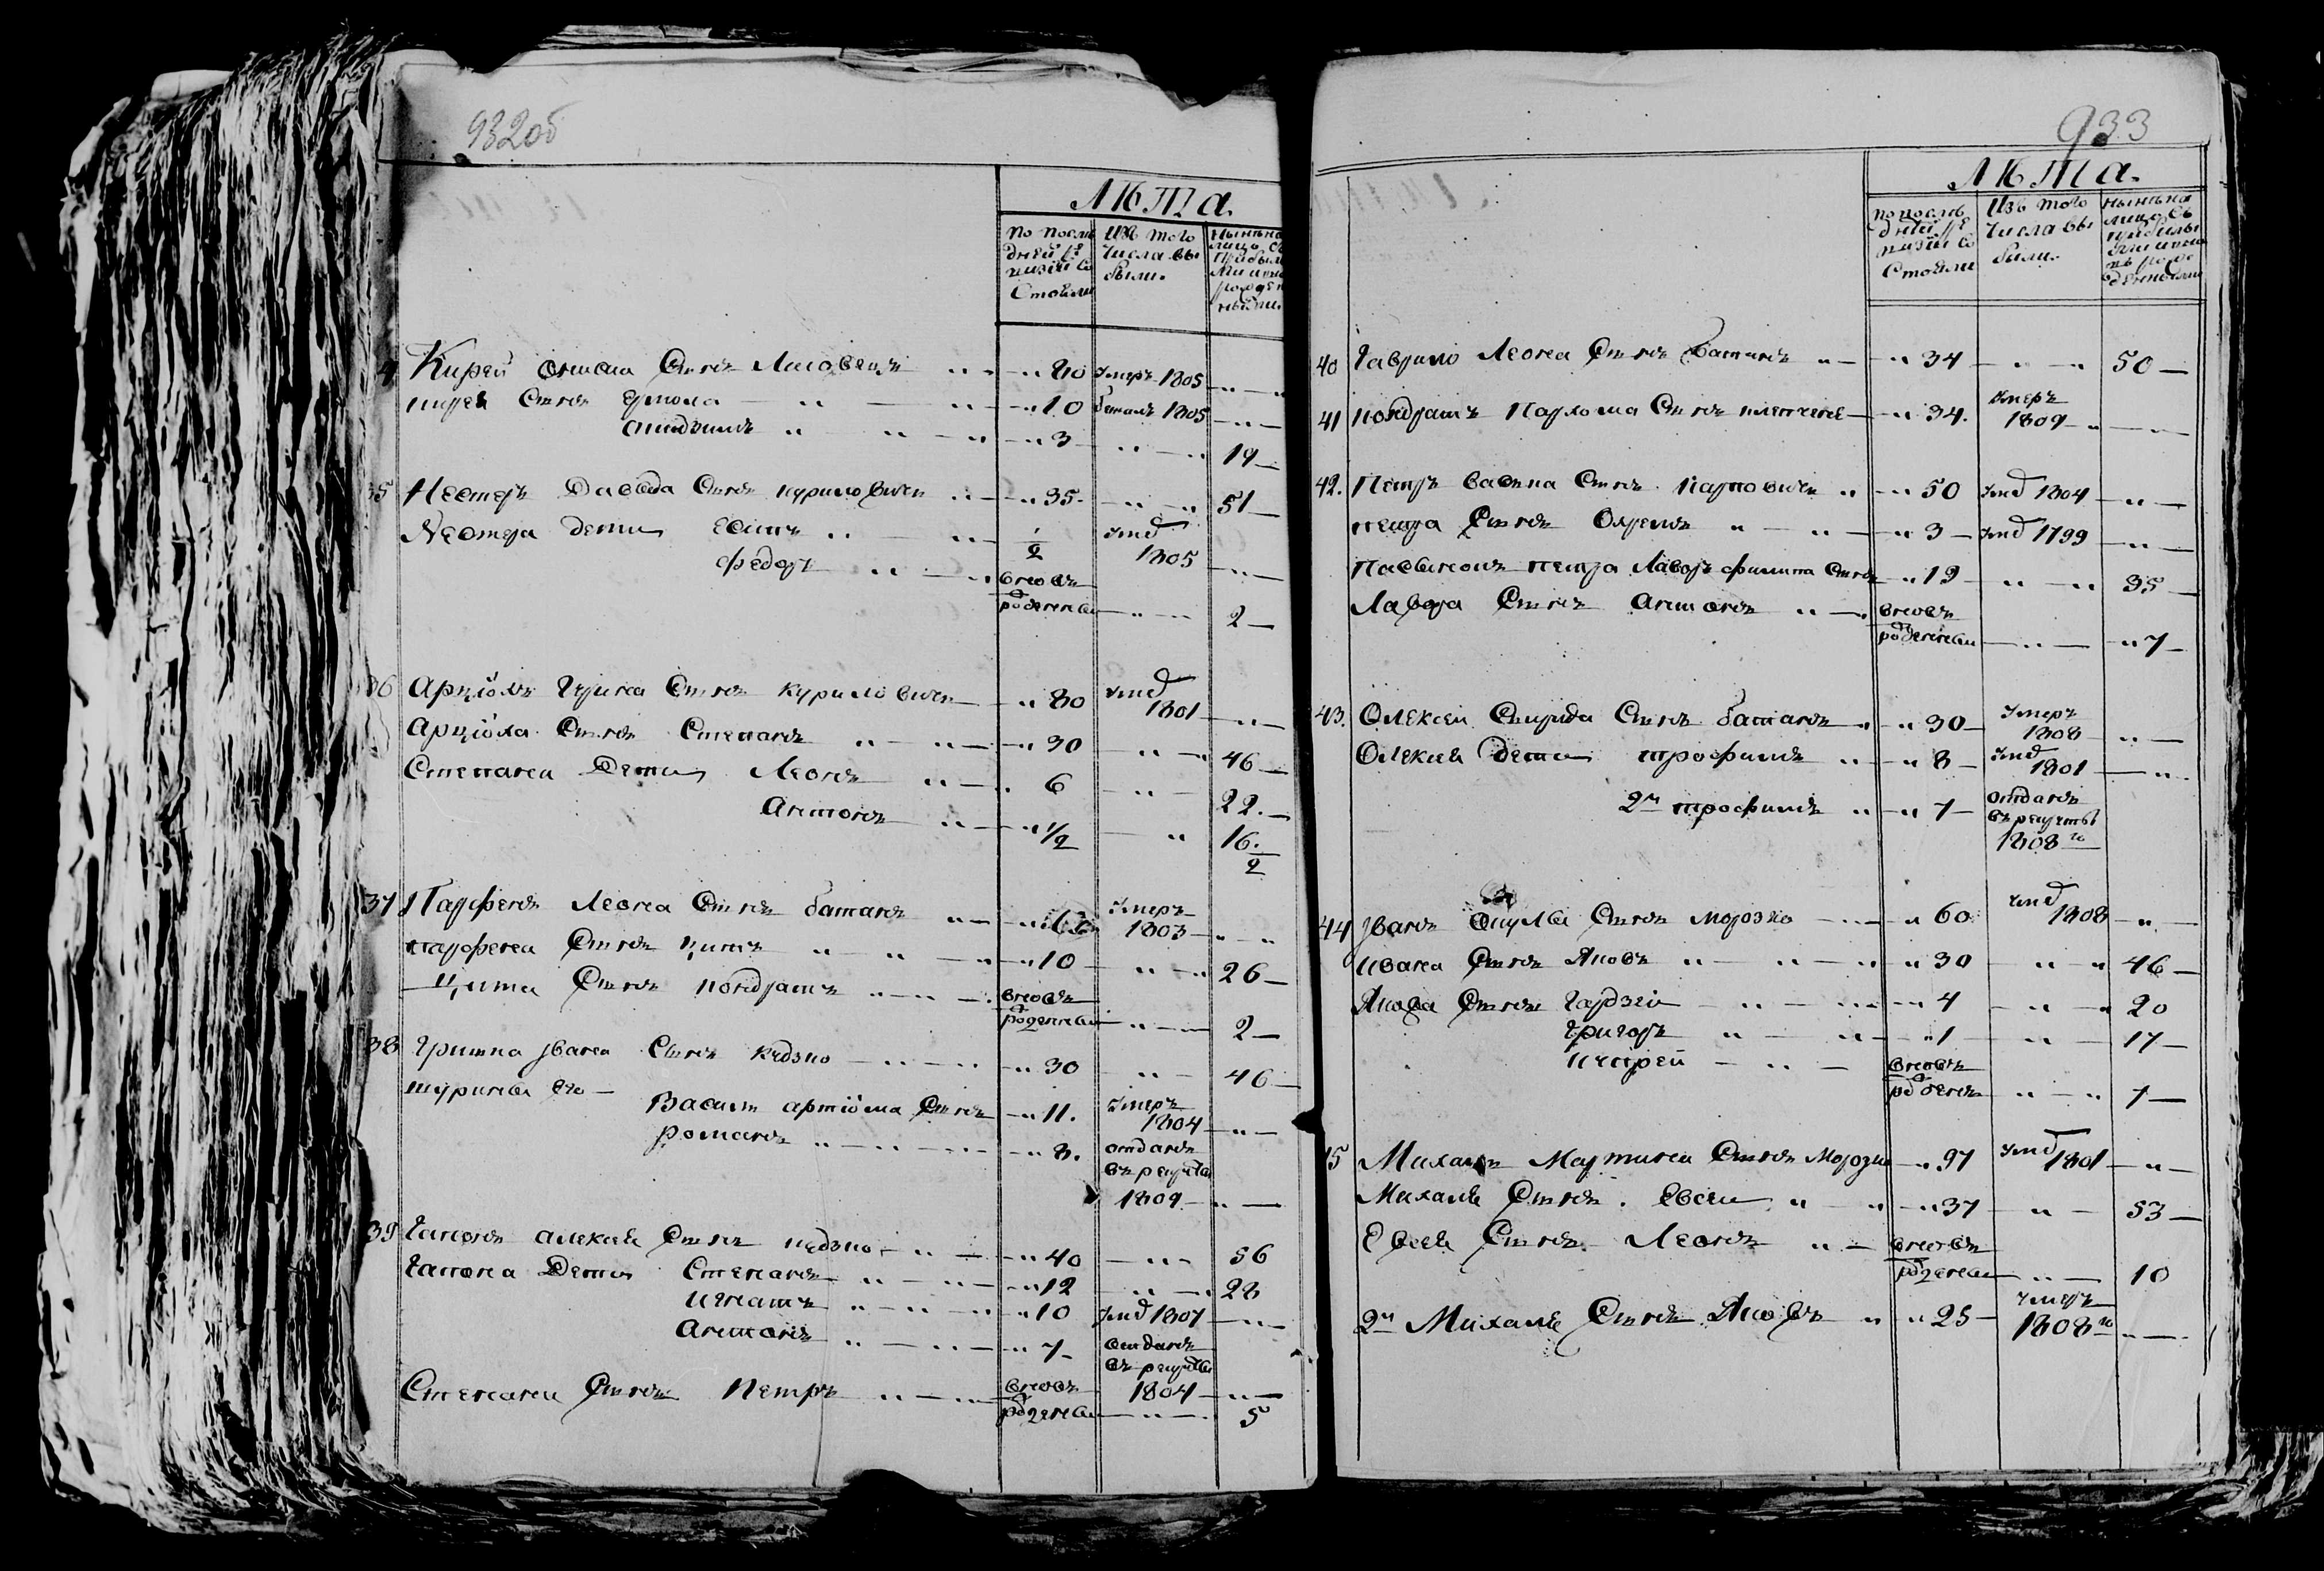 932об
ЛѢТА.
По послѣ
дней ре
визіи со
стояли
Изъ того
числа вы
были.
Нынѣ на
лицо съ
прибылы
ми и вно
рожден
ными
Кирей Сынъ Лисовецъ 80 умеръ 1805
Кирея Сынъ Ермола 10 бежалъ 1805
3 19
35 Нестеръ Давыда Сынъ Куриловичъ 35 51
Нестера дети Есипъ 1/2 умѣ 1805
Федоръ вновь
рожденны 2
36 Арціомъ Сынъ Куриловичъ 80 умѣ
1801
Арціома Сынъ Степанъ 30 46
Степана Дети Леонъ 6 22.
Антонъ 1/2 16. 1/2
37 Парфенъ Леона Сынъ батанъ умеръ
1803
парфена Сынъ цитъ 10 26
Цита Сынъ кондратъ вновь
рожденны 2
38 Гришка Ивана Сынъ кедзко 30 46
шурины его
Василь артіома Сынъ 11. умеръ
1804
романъ 8. отданъ
въ рекруты
1809
39 Гапонъ алексея Сынъ кедзко 40 56
Гапона Дети Степанъ 12 28
Игнатъ 10 умѣ 1807
Антонъ 7 отданъ
въ рекруты
1804
Степана Сынъ Петръ вновь
рожденны 5
933
ЛѢТА.
по послѣ
дней ре
визіи со
стояли
Изъ того
числа вы
были.
нынѣ на
лицо съ
прибылы
ми и вно
въ рож
денными
40 Гаврило Леона Сынъ батанъ 34 50
41 кондратъ Пархома Сынъ 34. умеръ
1809
42. Петръ Сынъ Карповичъ 50 умѣ 1804
петра Сынъ Охремъ 3 умѣ 1799
Пасынокъ петра Лаворъ филипа Сынъ 19 35
Лавора Сынъ Антонъ вновь
рожденны 7
43. Олексей Спирида Сынъ батанъ 30 умеръ
1808
Олексея дети трофимъ 8 умѣ
1801
2й трофимъ 7 отданъ
въ рекруты
1808го
44 Иванъ Сынъ морозко 60 умѣ
1808
Ивана Сынъ Яковъ 30 46
Якова Сынъ Гардзей 4 20
Григоръ 1 17
Андрей вновь
рожденъ 7
45 Михалъ Мартина Сынъ Морозко 97 умѣ 1801
Михала Сынъ Евсей 37 53
Евсея Сынъ Леонъ вновь
рожденны 10
2й Михала Сынъ Яковъ 25 умеръ
1808го